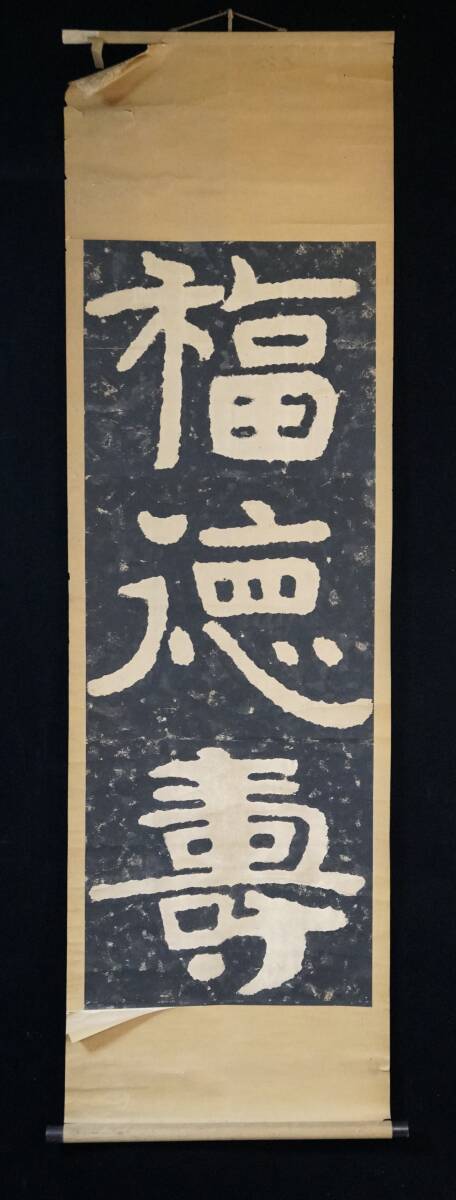 福德壽